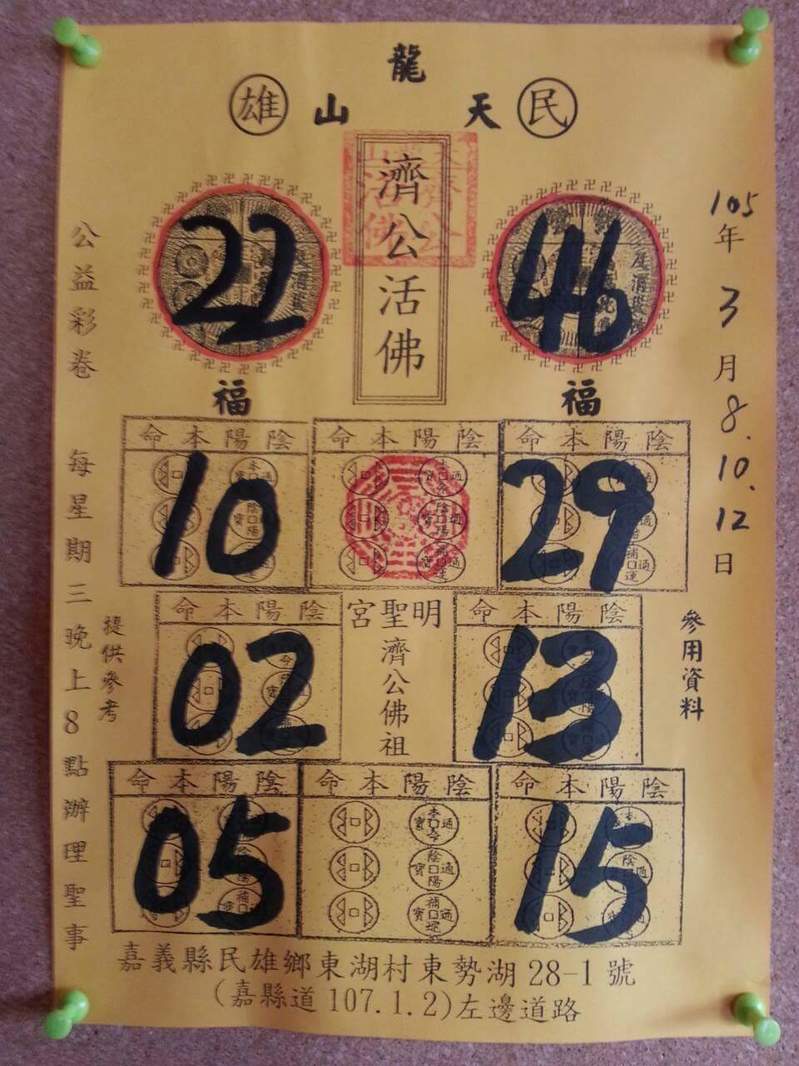 龍
雄 山 天 民
濟公活佛
22
46
福
福
105年3月8.10.12日
參用資料
公益彩卷 每星期三晚上8點辦理聖事
提供參考
命本陽陰
命本陽陰
命本陽陰
10
29
命本陽陰
宮聖明
命本陽陰
02
濟公佛祖
13
命本陽陰
命本陽陰
命本陽陰
05
15
嘉義縣民雄鄉東湖村東勢湖28-1號
(嘉縣道107.1.2)左邊道路